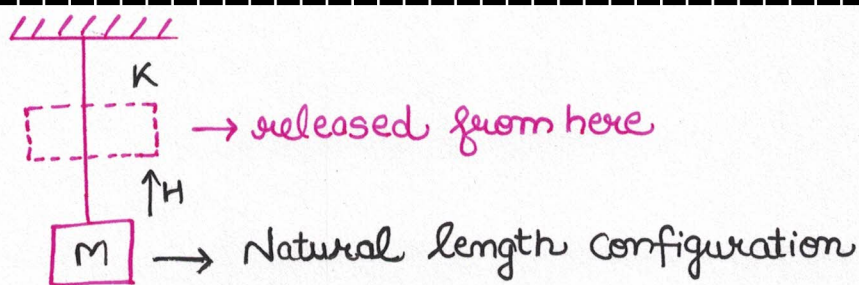 K
→ released from here
↑H
M → Natural length configuration